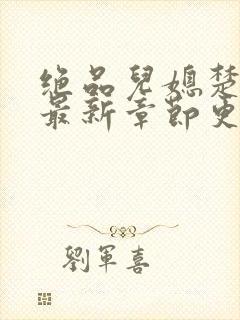 绝品兒媳楚
最新章節更
劉軍喜